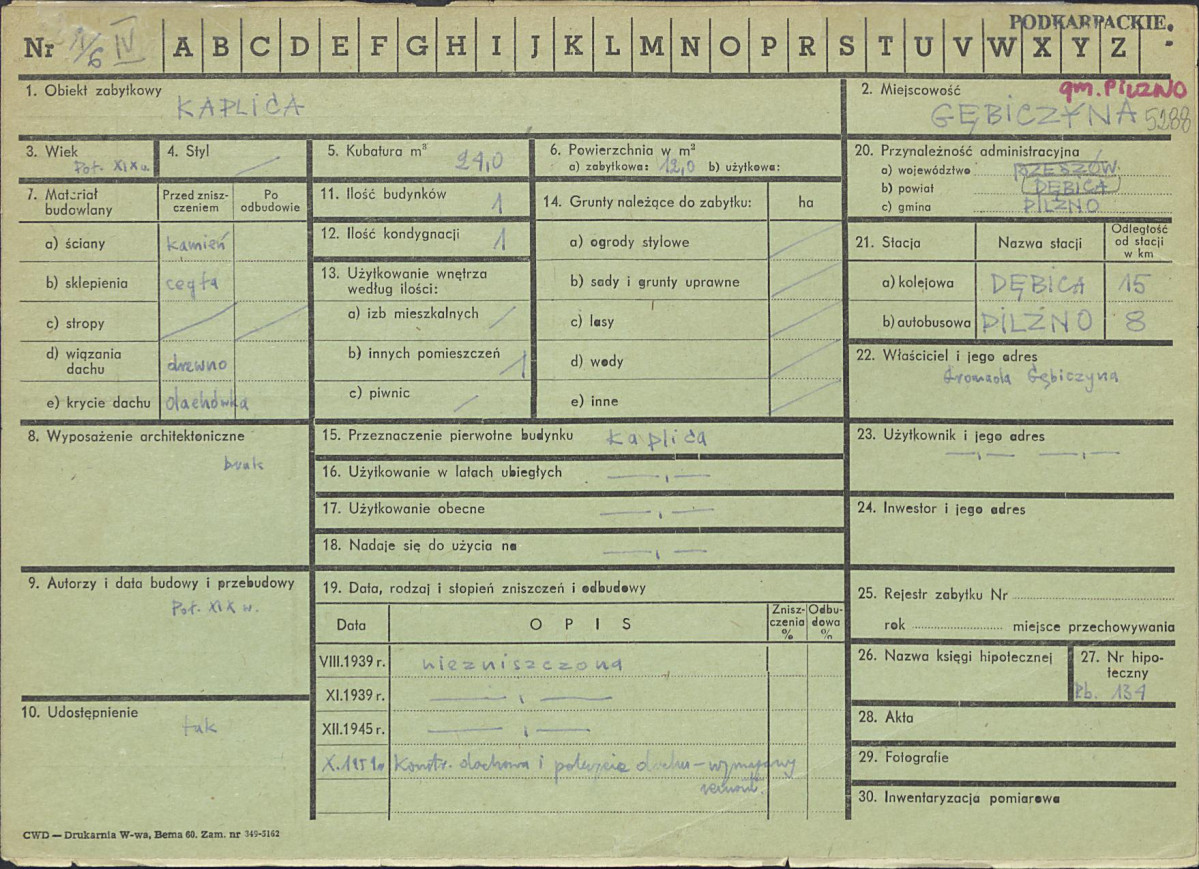 PODKARPACKIE.
Nr IV A B C D E F G H I J K L M N O P R S T U V W X Y Z
1. Obiekt zabytkowy
KAPLICA
2. Miejscowość
gm. PILZNO
GĘBICZYNA 5288
3. Wiek
Poł. XIX w.
4. Styl
5. Kubatura m³
24,0
6. Powierzchnia w m²
a) zabytkowa: 12,0 b) użytkowa:
20. Przynależność administracyjna
a) województwo RZESZÓW
b) powiat DĘBICA
c) gmina PILZNO
7. Materiał budowlany
Przed zniszczeniem
Po odbudowie
a) ściany kamień
b) sklepienia cegła
c) stropy
d) wiązania dachu drewno
e) krycie dachu dachówka
11. Ilość budynków 1
12. Ilość kondygnacji 1
13. Użytkowanie wnętrza
według ilości:
a) izb mieszkalnych
b) innych pomieszczeń 1
c) piwnic
14. Grunty należące do zabytku: ha
a) ogrody stylowe
b) sady i grunty uprawne
c) lasy
d) wody
e) inne
21. Stacja Nazwa stacji
Odległość
od stacji
w km
a) kolejowa DĘBICA 15
b) autobusowa PILZNO 8
22. Właściciel i jego adres
Gromada Gębiczyna
8. Wyposażenie architektoniczne
brak
15. Przeznaczenie pierwotne budynku kaplica
16. Użytkowanie w latach ubiegłych — „ —
17. Użytkowanie obecne — „ —
18. Nadaje się do użycia na — „ —
23. Użytkownik i jego adres
— „ — — „ —
24. Inwestor i jego adres
9. Autorzy i data budowy i przebudowy
Poł. XIX w.
19. Data, rodzaj i stopień zniszczeń i odbudowy
Data OPIS
Zniszczenia %
Odbudowa %
VIII.1939 r. niezniszczona
XI.1939 r. — „ —
XII.1945 r. — „ —
X.1959r Konstr. dachowa i pokrycie dachu – wymagany
remont.
25. Rejestr zabytku Nr
rok miejsce przechowywania
26. Nazwa księgi hipotecznej
27. Nr hipoteczny
Pb. 134
10. Udostępnienie
tak
28. Akta
29. Fotografie
30. Inwentaryzacja pomiarowa
CWD — Drukarnia W-wa, Bema 60. Zam. nr 349-5162